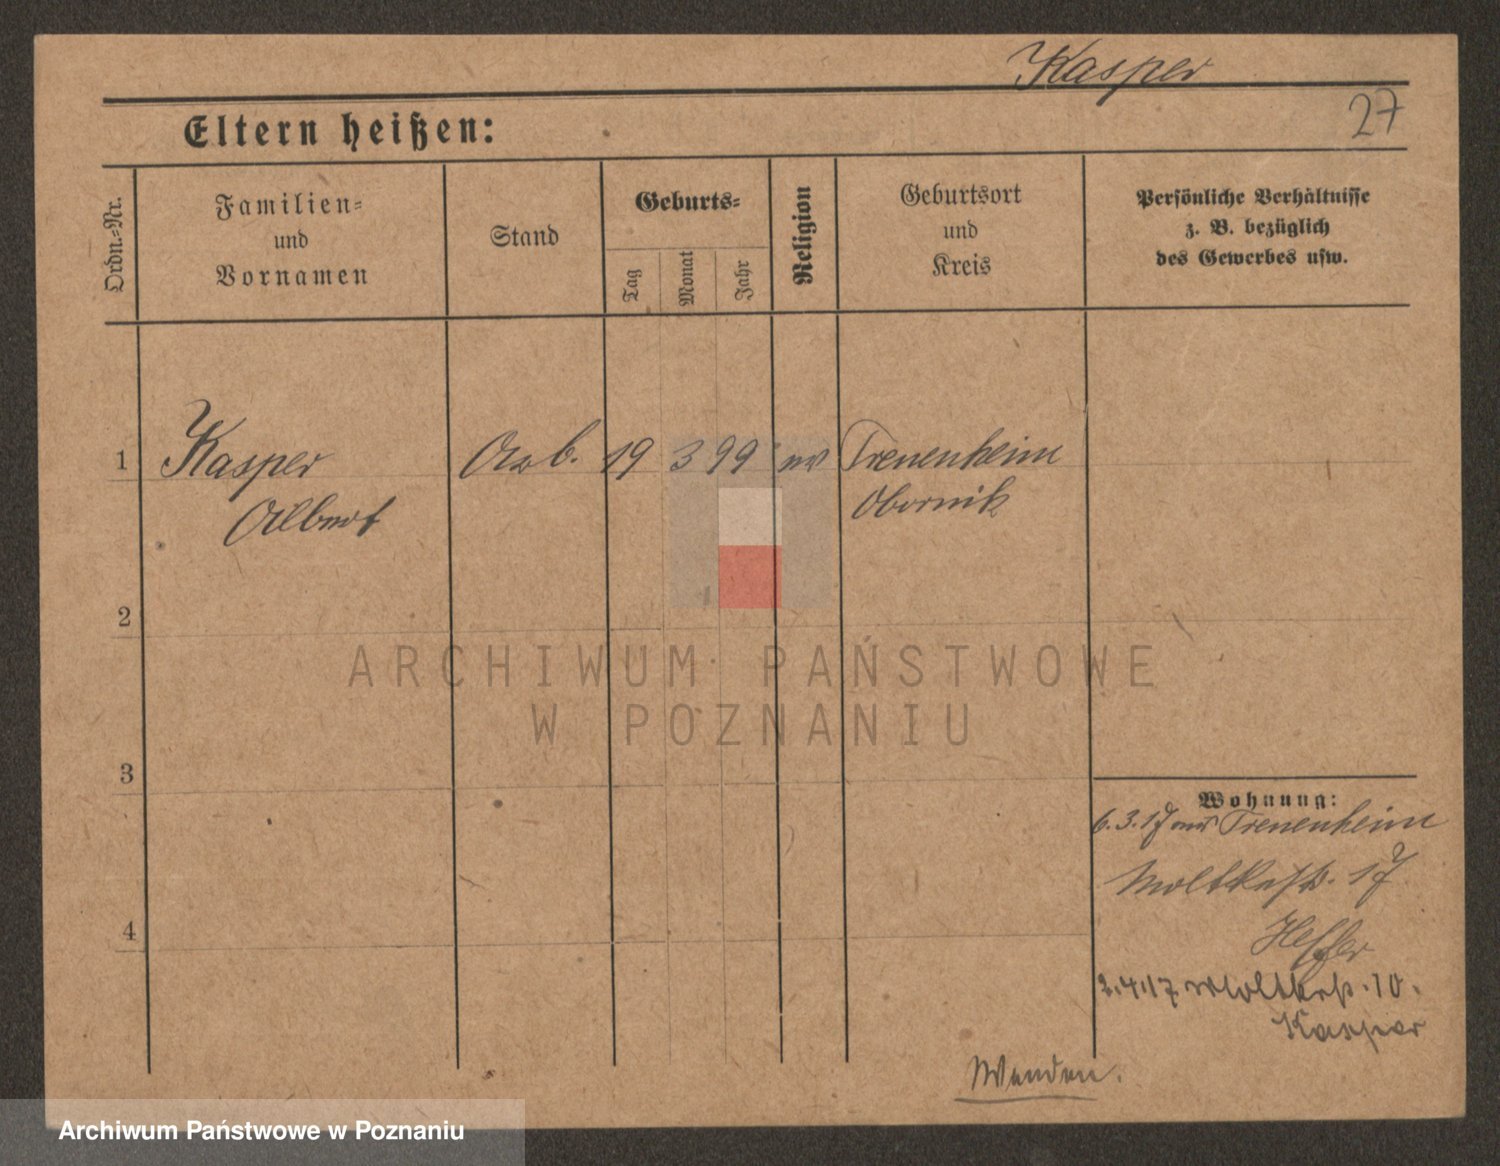 Kasper
27
Eltern heißen:
Ordn.-Nr.
Familien-
und
Vornamen
Stand
Geburts-
Tag
Monat
Jahr
Religion
Geburtsort
und
Kreis
Persönliche Verhältnisse
z. B. bezüglich
des Gewerbes usw.
1
Kasper
Albert
Arb.
19
3
99
ev
Treuenheim
Obornik
2
ARCHIWUM PAŃSTWOWE
W POZNANIU
3
Wohnung:
6.3.17 aus Treuenheim
Moltkestr. 17
4
2.4.17 Moltkestr. 10.
Kasper
Wenden.
Archiwum Państwowe w Poznaniu